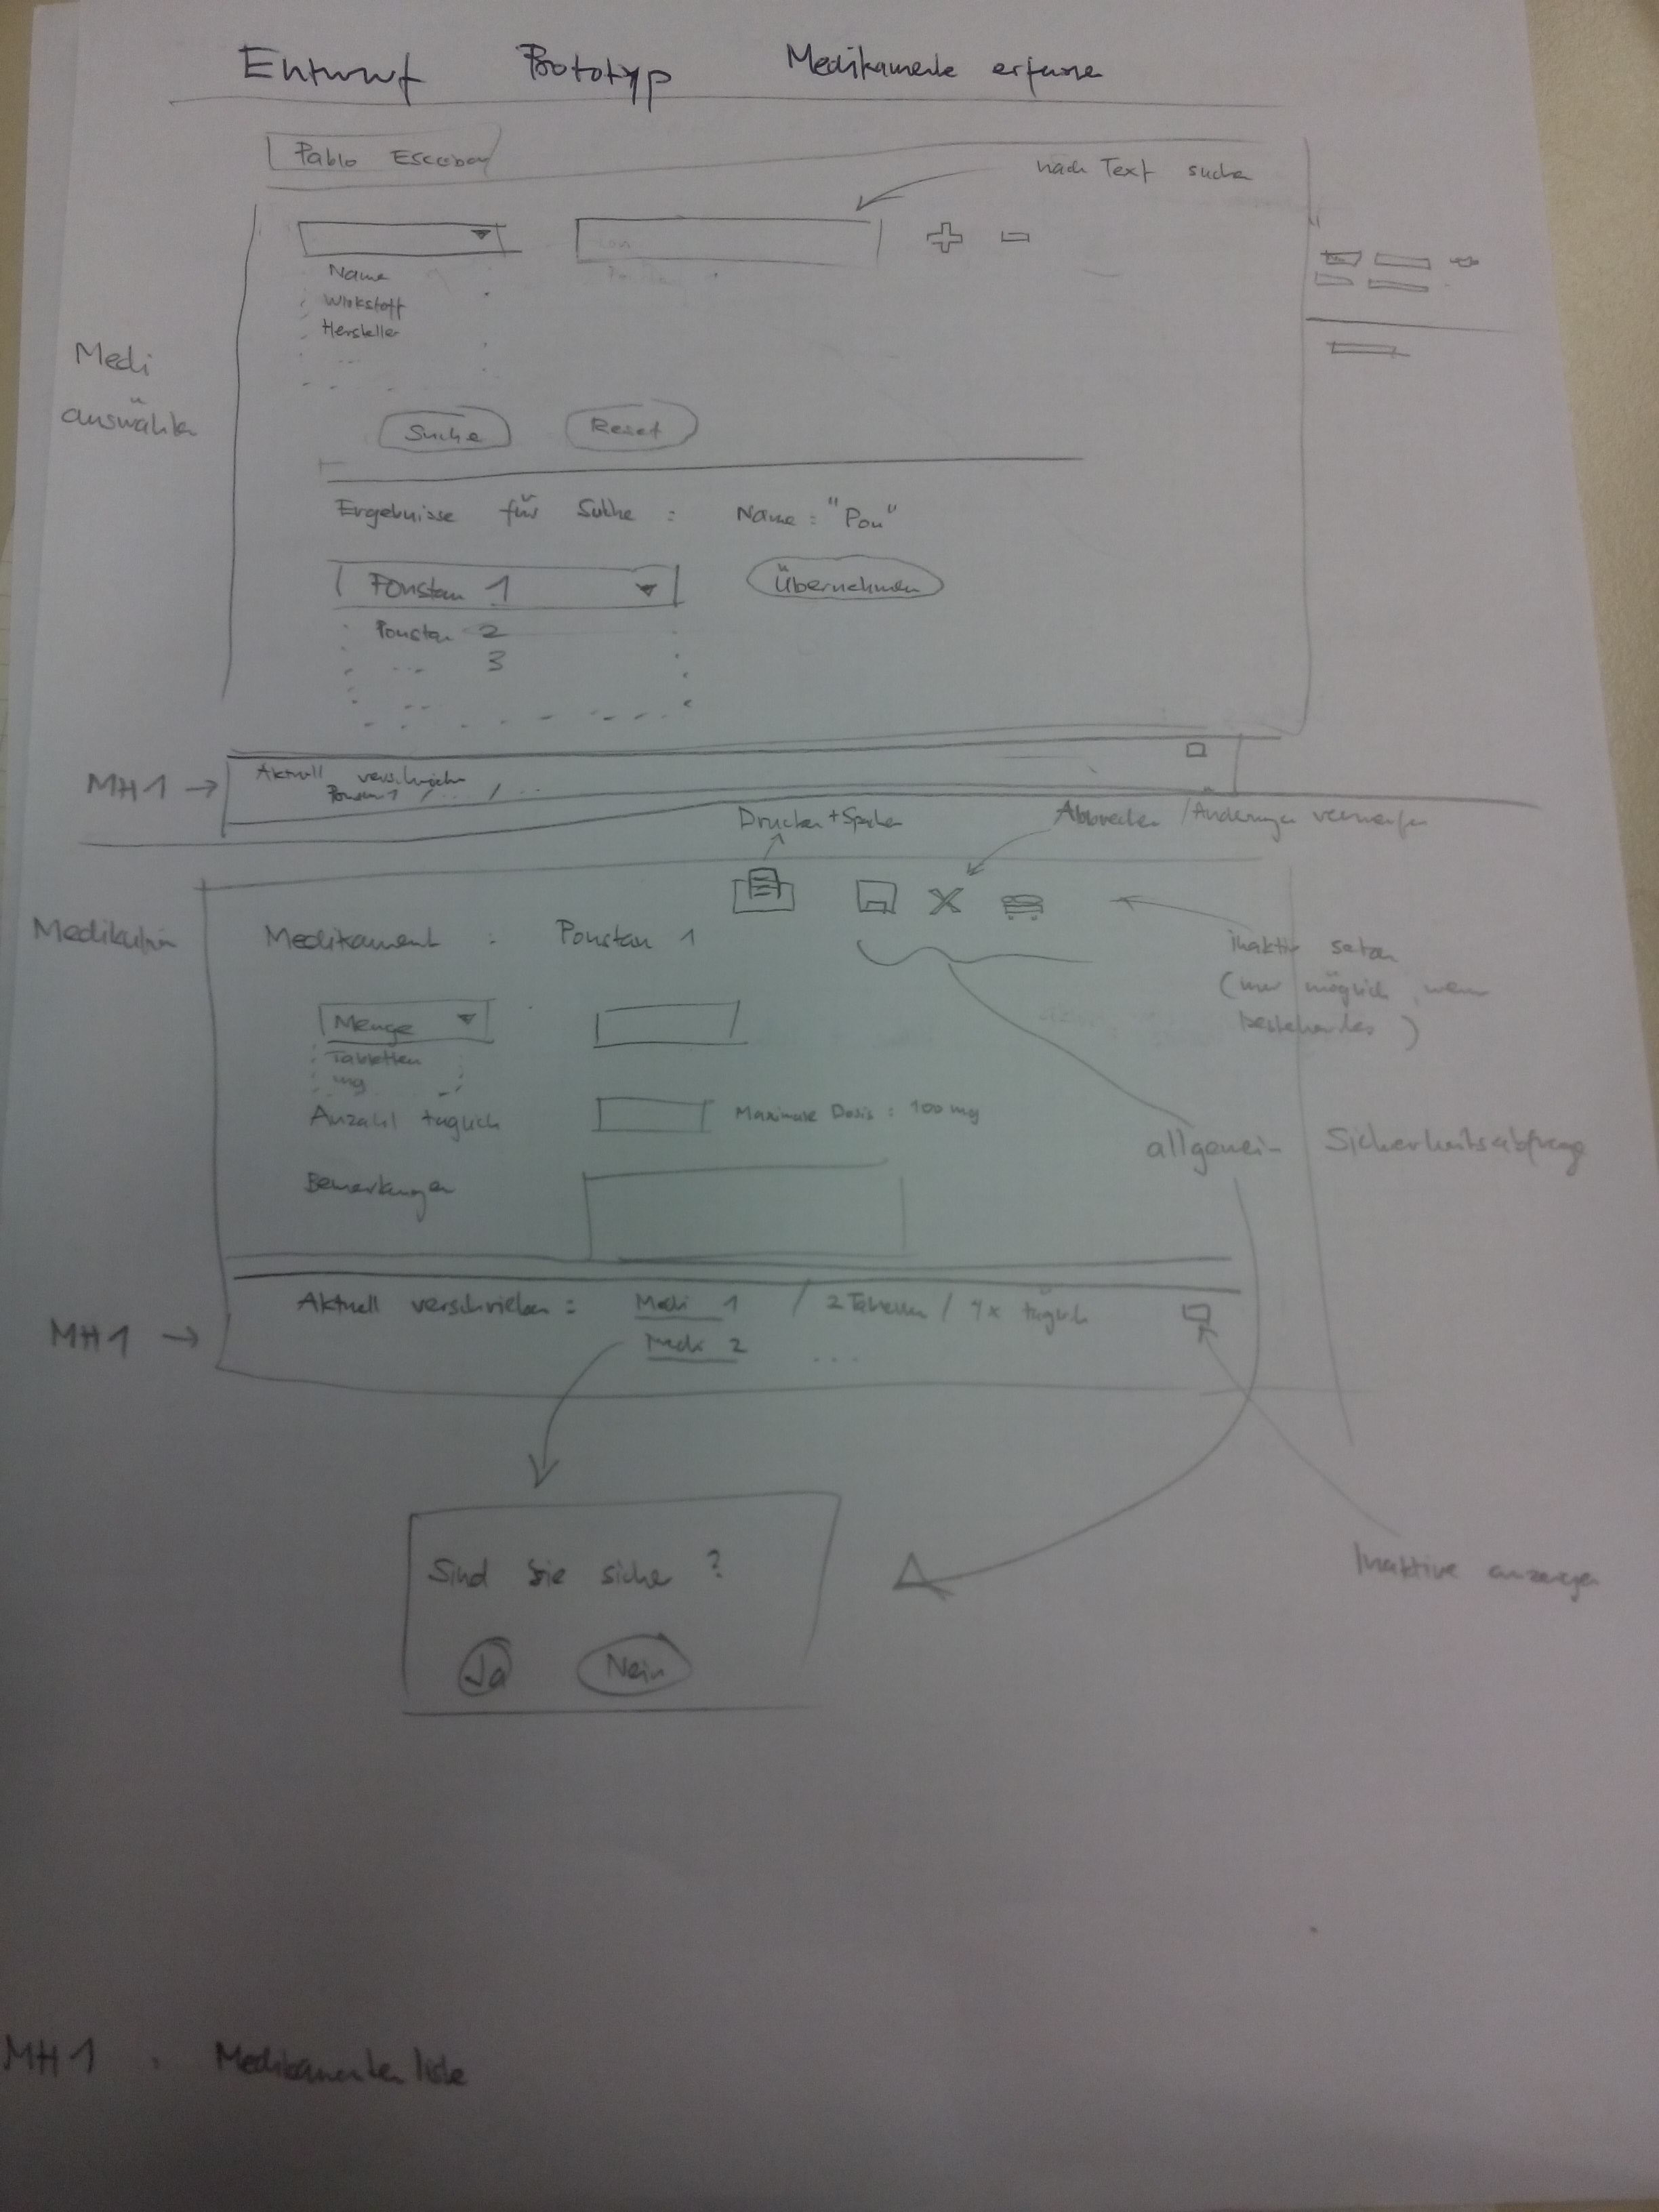 Entwurf Prototyp Medikamente erfassen
Pablo Escobar
nach Text suchen
Name
Wirkstoff
Hersteller
Medi
auswählen
Suche Reset
Ergebnisse für Suche : Name : "Pon"
Ponstan 1 Übernehmen
Ponstan 2
3
MH1
Aktuell verschrieben
Ponstan 1 / ... / ...
Drucken + Speichern
Abbrechen / Änderungen verwerfen
Medikation
Medikament : Ponstan 1
inaktiv setzen
(nur möglich, wenn
bestehendes)
Menge
Tabletten
mg
Anzahl täglich Maximale Dosis : 100 mg
allgemein Sicherheitsabfrage
Bemerkungen
MH1
Aktuell verschrieben : Medi 1 / 2 Tabletten / 4x täglich
Medi 2 ...
Sind Sie sicher ?
Inaktive anzeigen
Ja Nein
MH1 : Medikamentenliste